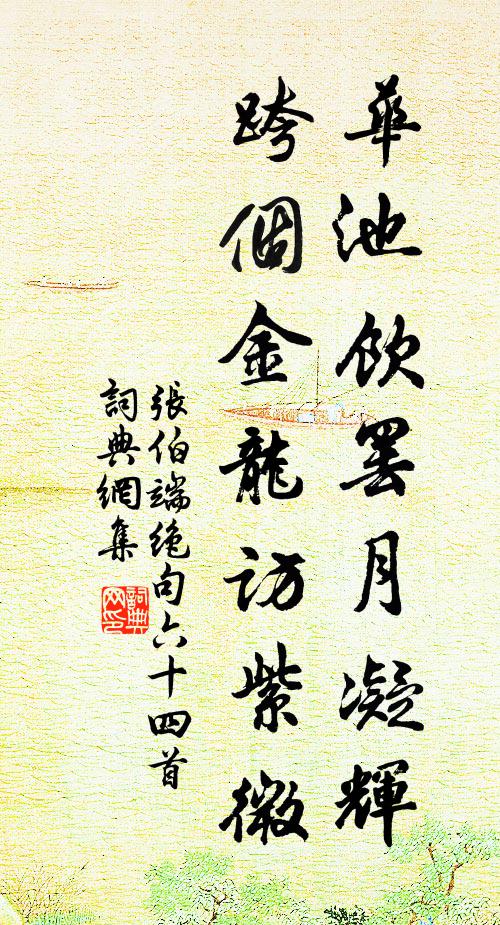 華池飲罢月凝輝
跨個金龍訪紫微
張伯端绝句六十四首
詞典網集
詞典网印